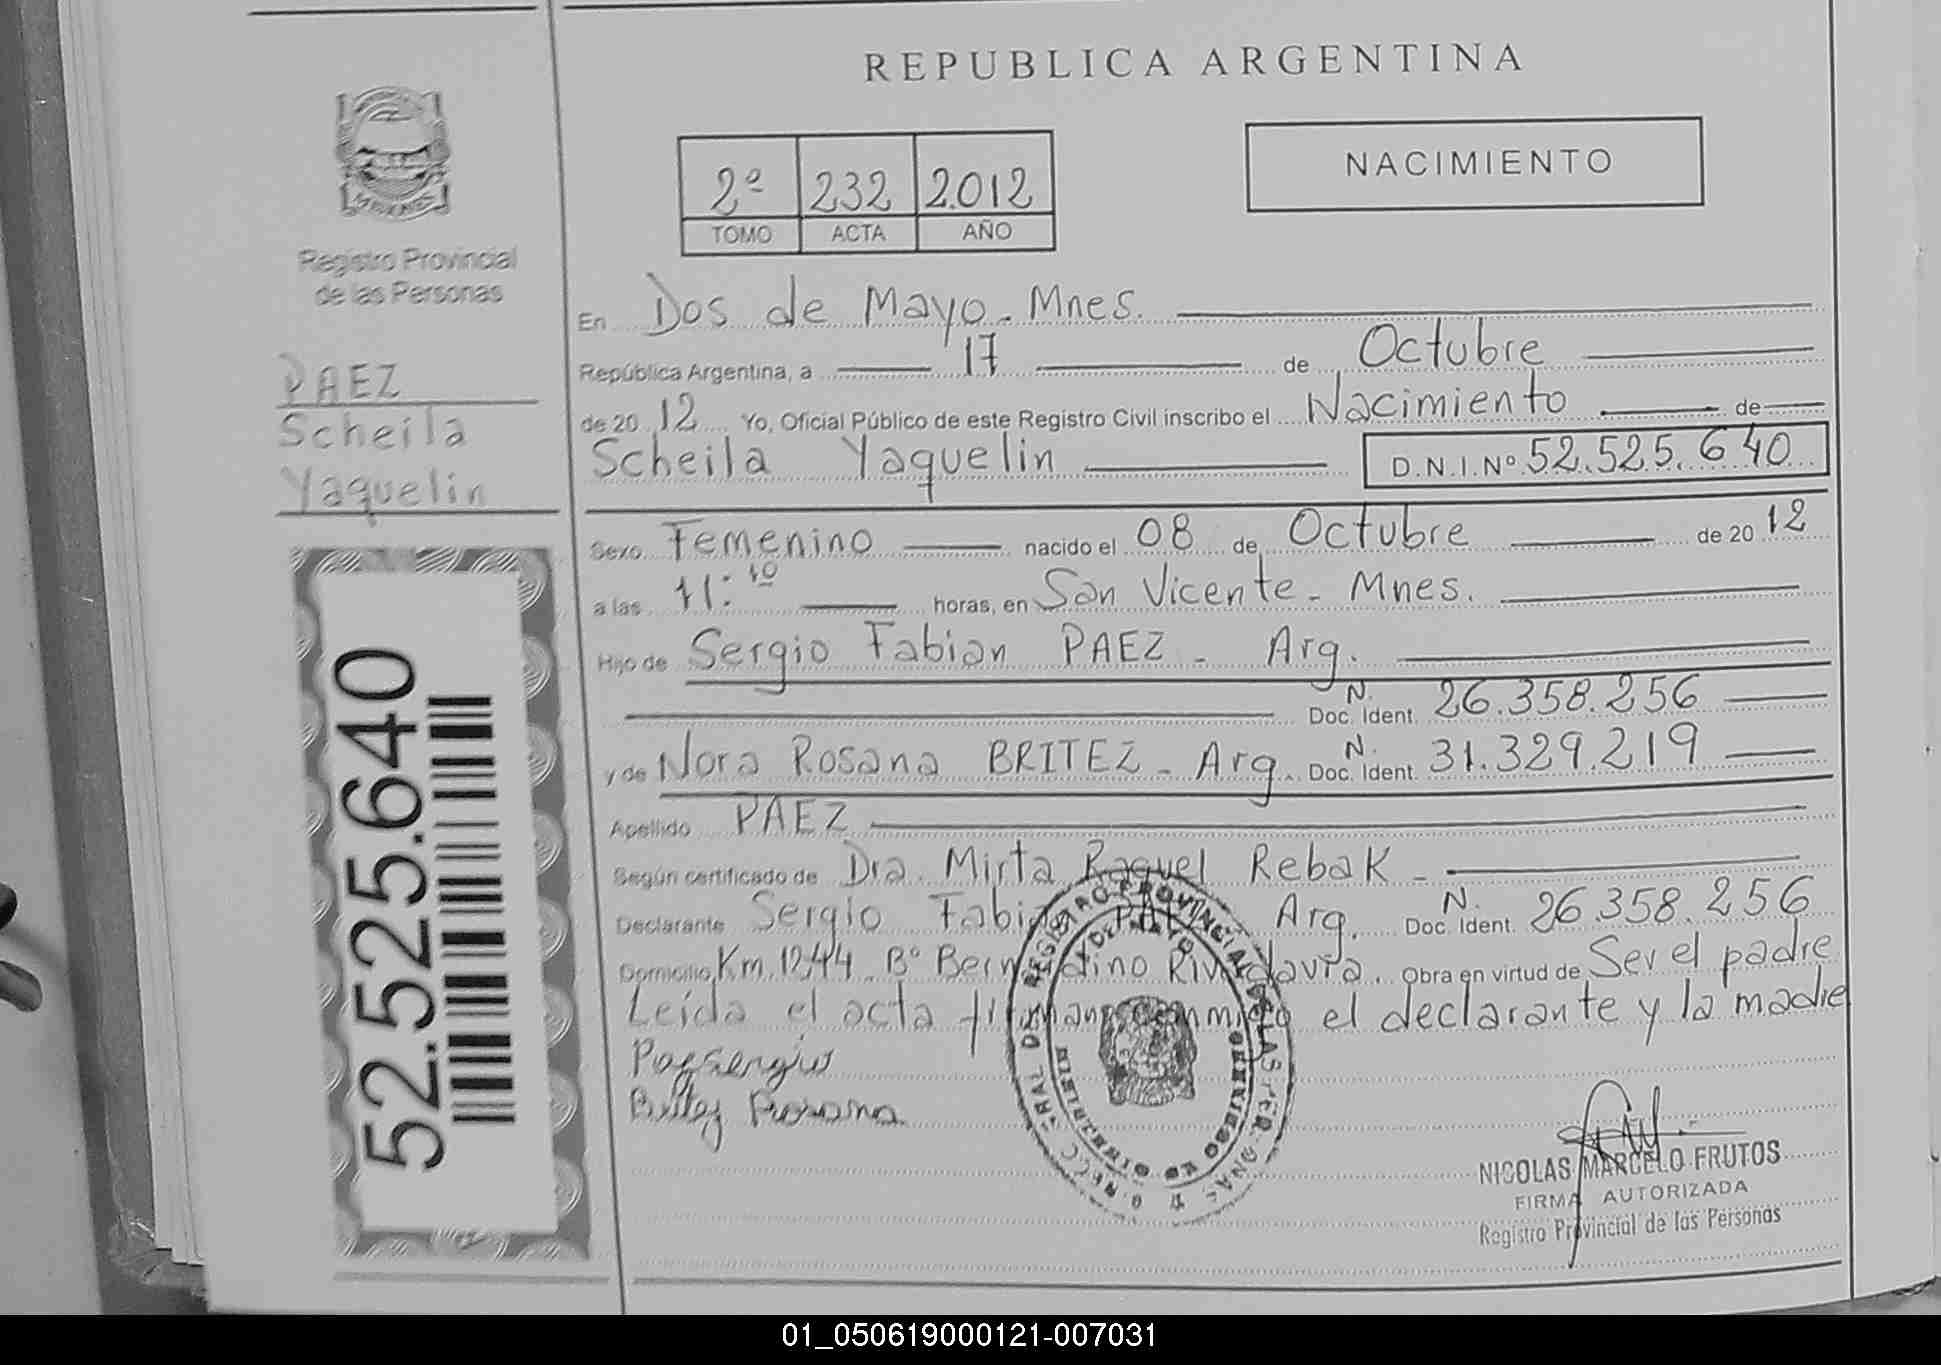 REPUBLICA ARGENTINA
NACIMIENTO
2º 232 2.012
TOMO ACTA AÑO
Registro Provincial
de las Personas
PAEZ
Scheila
Yaquelin
52.525.640
En Dos de Mayo - Mnes.
República Argentina, a 17 de Octubre
de 20 12 Yo, Oficial Público de este Registro Civil inscribo el Nacimiento de
Scheila Yaquelin D.N.I.Nº 52.525.640
Sexo Femenino nacido el 08 de Octubre de 20 12
a las 11:10 horas, en San Vicente - Mnes.
Hijo de Sergio Fabian PAEZ - Arg.
Doc. Ident. N. 26.358.256
y de Nora Rosana BRITEZ - Arg. Doc. Ident. N. 31.329.219
Apellido PAEZ
Según certificado de Dra. Mirta Raquel Rebak -
Declarante Sergio Fabian PAEZ Arg. Doc. Ident. N. 26.358.256
Domicilio Km. 1244 - Bº Bernardino Rivadavia. Obra en virtud de Ser el padre
Leída el acta firman conmigo el declarante y la madre
Paez Sergio
Britez Rosana
NICOLAS MARCELO FRUTOS
FIRMA AUTORIZADA
Registro Provincial de las Personas
01_050619000121-007031